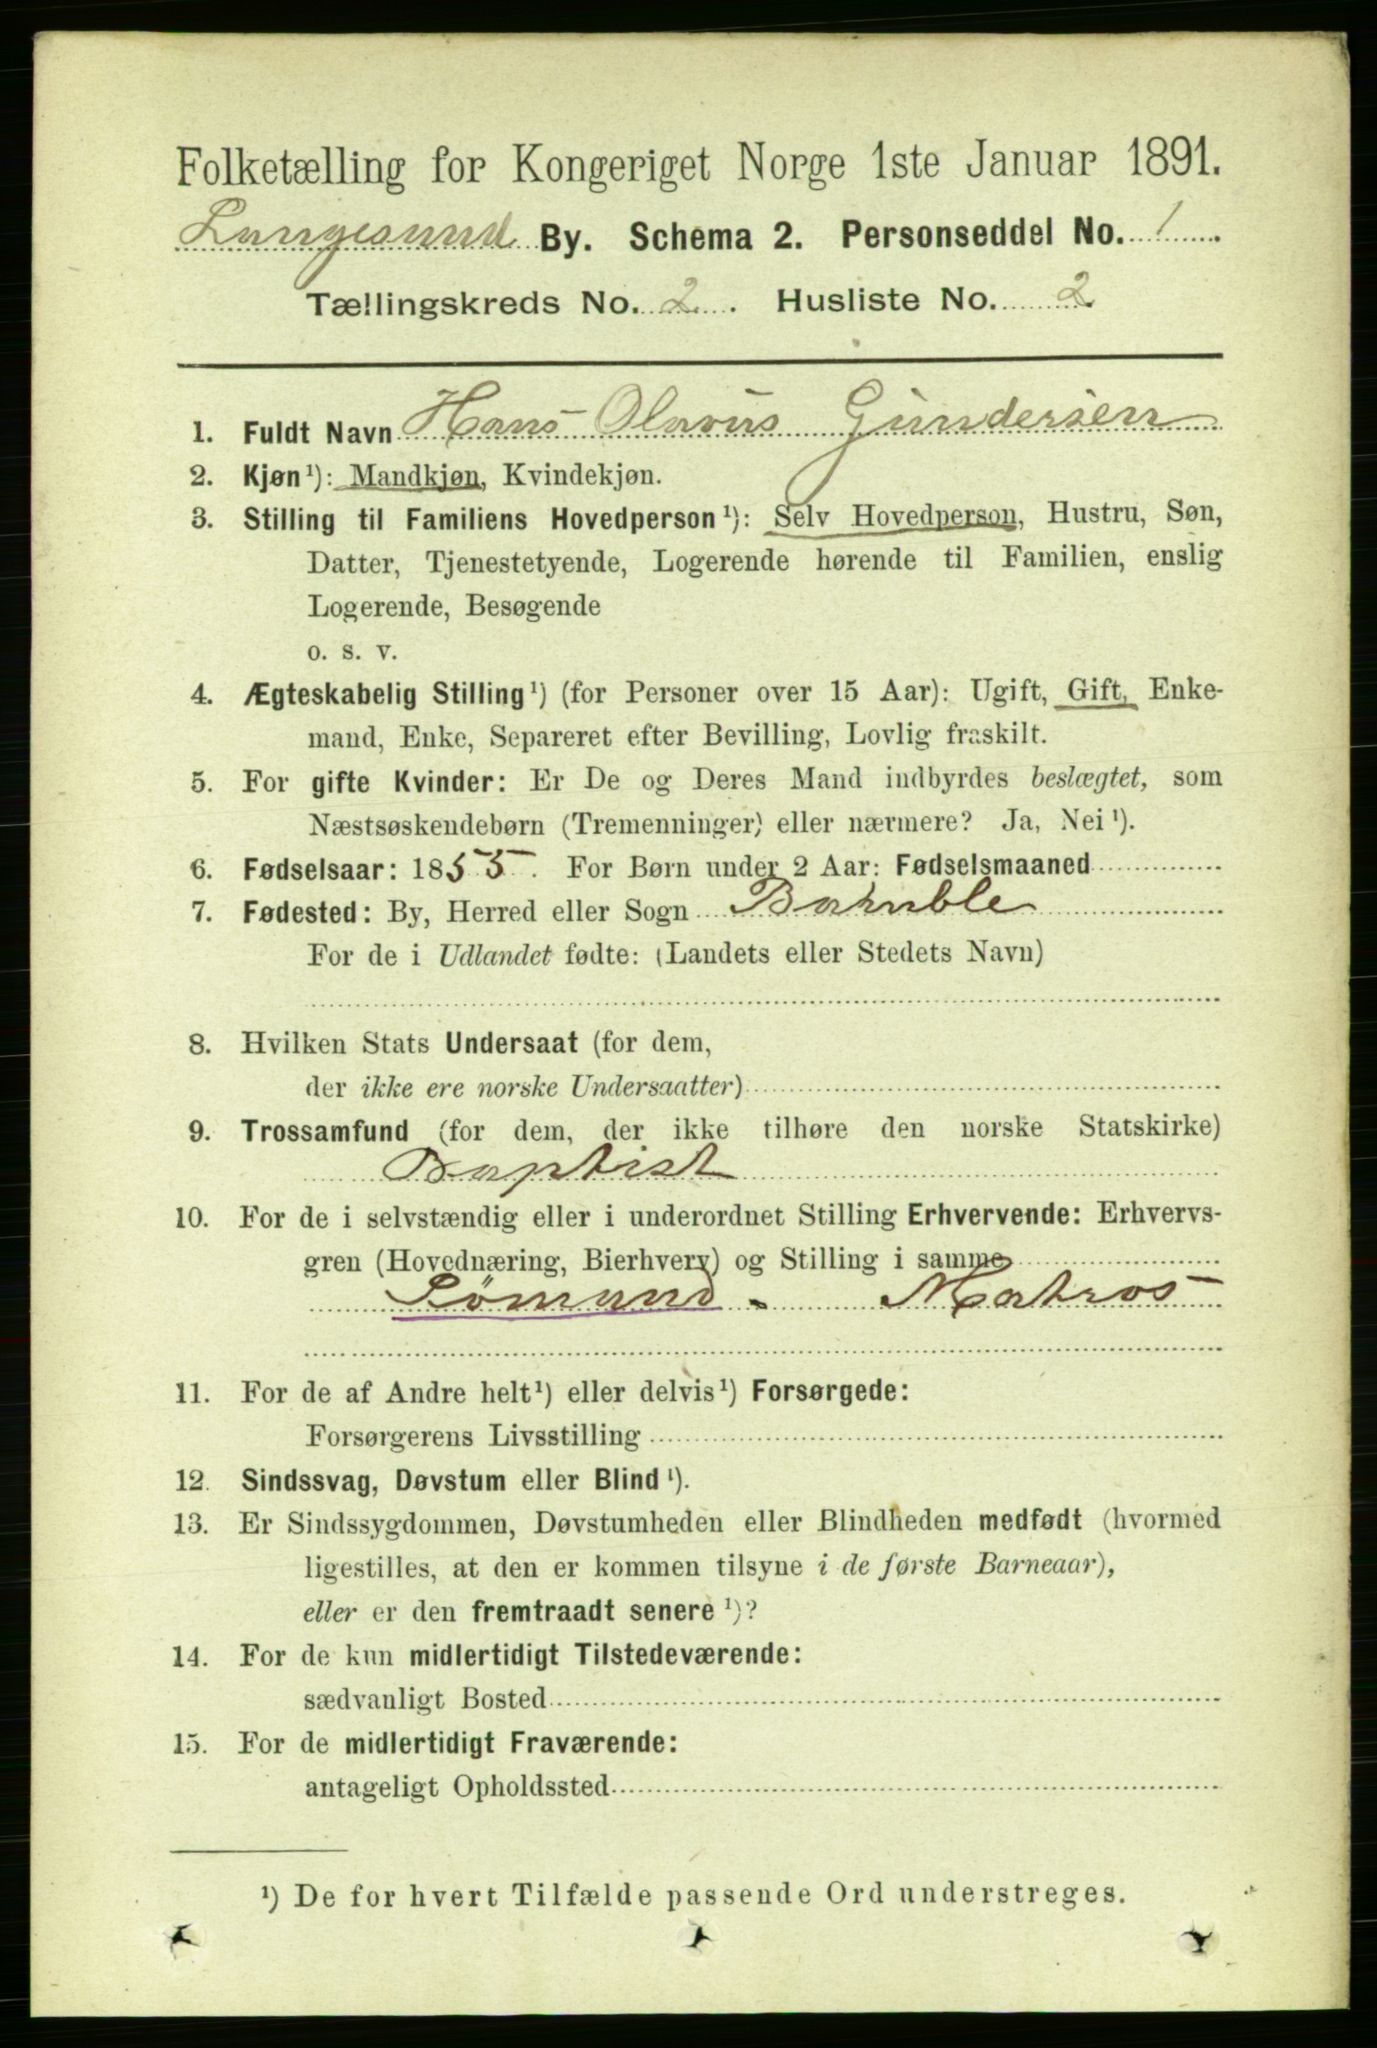 Folketælling for Kongeriget Norge 1ste Januar 1891.
Langesund By. Schema 2. Personseddel No. 1
Tællingskreds No. 2. Husliste No. 2
1. Fuldt Navn Hans Olavus Gundersen
2. Kjøn¹): Mandkjøn, Kvindekjøn.
3. Stilling til Familiens Hovedperson¹): Selv Hovedperson, Hustru, Søn,
Datter, Tjenestetyende, Logerende hørende til Familien, enslig
Logerende, Besøgende
o. s. v.
4. Ægteskabelig Stilling¹) (for Personer over 15 Aar): Ugift, Gift, Enke-
mand, Enke, Separeret efter Bevilling, Lovlig fraskilt.
5. For gifte Kvinder: Er De og Deres Mand indbyrdes beslægtet, som
Næstsøskendebørn (Tremenninger) eller nærmere? Ja, Nei¹).
6. Fødselsaar: 1855. For Børn under 2 Aar: Fødselsmaaned
7. Fødested: By, Herred eller Sogn Bamble
For de i Udlandet fødte: (Landets eller Stedets Navn)
8. Hvilken Stats Undersaat (for dem,
der ikke ere norske Undersaatter)
9. Trossamfund (for dem, der ikke tilhøre den norske Statskirke)
Baptist
10. For de i selvstændig eller i underordnet Stilling Erhvervende: Erhvervs-
gren (Hovednæring, Bierhverv) og Stilling i samme
Sømand - Matros
11. For de af Andre helt¹) eller delvis¹) Forsørgede:
Forsørgerens Livsstilling
12. Sindssvag, Døvstum eller Blind¹).
13. Er Sindssygdommen, Døvstumheden eller Blindheden medfødt (hvormed
ligestilles, at den er kommen tilsyne i de første Barneaar),
eller er den fremtraadt senere¹)?
14. For de kun midlertidigt Tilstedeværende:
sædvanligt Bosted
15. For de midlertidigt Fraværende:
antageligt Opholdssted
¹) De for hvert Tilfælde passende Ord understreges.